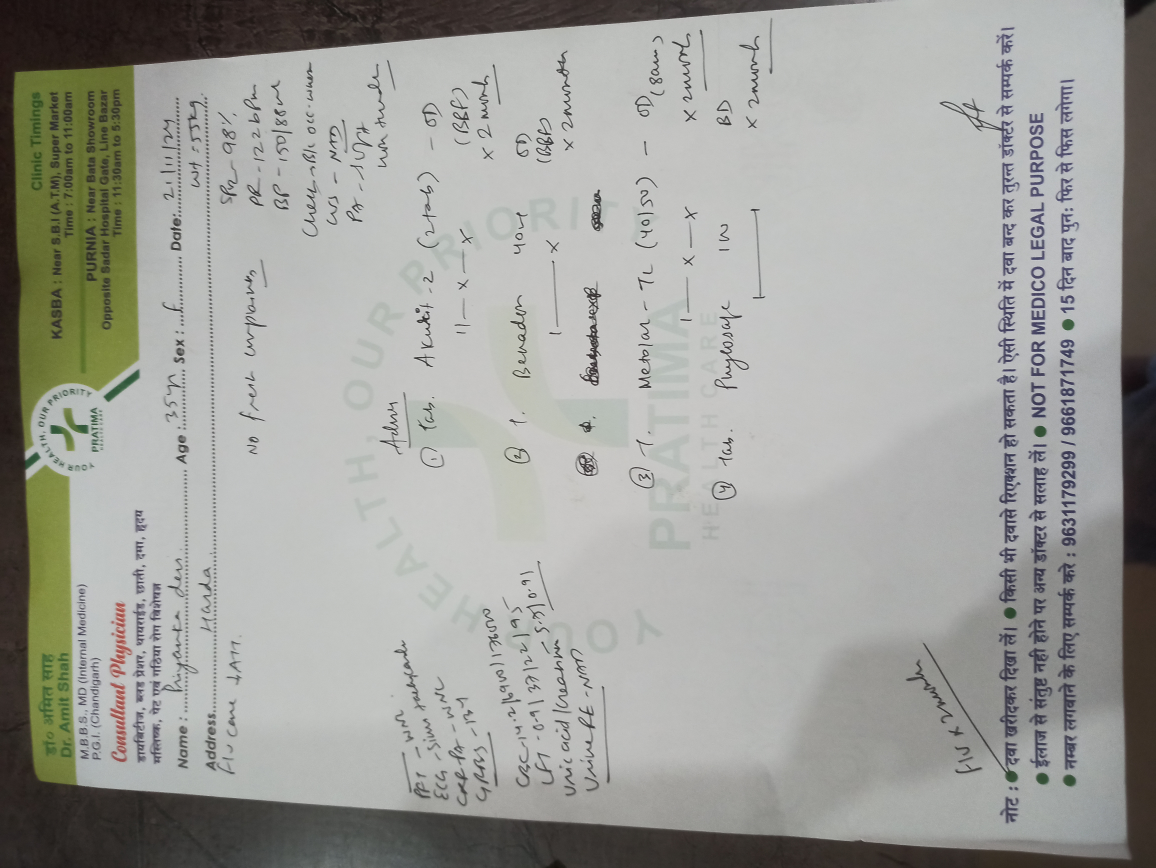 डॉ० अमित साह
Dr. Amit Shah
M.B.B.S., MD (Internal Medicine)
P.G.I. (Chandigarh)
Consultant Physician
डायबिटीज, ब्लड प्रेशर, थायराईड, छाती, दमा, हृदय
मस्तिष्क, पेट एवं गठिया रोग विशेषज्ञ
YOUR HEALTH, OUR PRIORITY
PRATIMA
Clinic Timings
KASBA : Near S.B.I (A.T.M), Super Market
Time : 7:00am to 11:00am
PURNIA : Near Bata Showroom
Opposite Sadar Hospital Gate, Line Bazar
Time : 11:30am to 5:30pm
Name : Priyanka devi Age : 35yr Sex : f Date: 21/11/24
Address Harda Wt = 55kg
F/U case
No fresh complaints
SPO2 - 98%
PR - 122 bpm
BP - 150/80
Chest - B/L
- NAD
P/A - soft
non tender
PFT - WNL
ECG - Sinus tachycardia
CXR-PA - WNL
GRBS -
CBC - 14.2/6900/136000
LFT - 0.9/37/22/95
Uric acid/creatinine - 5.3/0.91
Urine RE - NAD
Advice
① Tab. Akurit-2 (2 tab) - OD
11 — x — x (BBF)
x 2 month
② T. Benadon 40mg OD
1 — x (BBF)
x 2 months
③ T. Metolar - TL (40/50) - OD (8am)
1 — x — x x 2 month
④ Tab. BD
x 2 month
YOUR HEALTH, OUR PRIORITY
PRATIMA
HEALTH CARE
F/U x 2 month
नोट : ● दवा खरीदकर दिखा लें। ● किसी भी दवासे रिएक्शन हो सकता है। ऐसी स्थिति में दवा बन्द कर तुरन्त डॉक्टर से सम्पर्क करें।
● ईलाज से संतुष्ट नही होने पर अन्य डॉक्टर से सलाह लें। ● NOT FOR MEDICO LEGAL PURPOSE
● नम्बर लगवाने के लिए सम्पर्क करे : 9631179299 / 9661871749 ● 15 दिन बाद पुनः फिर से फिस लगेगा।